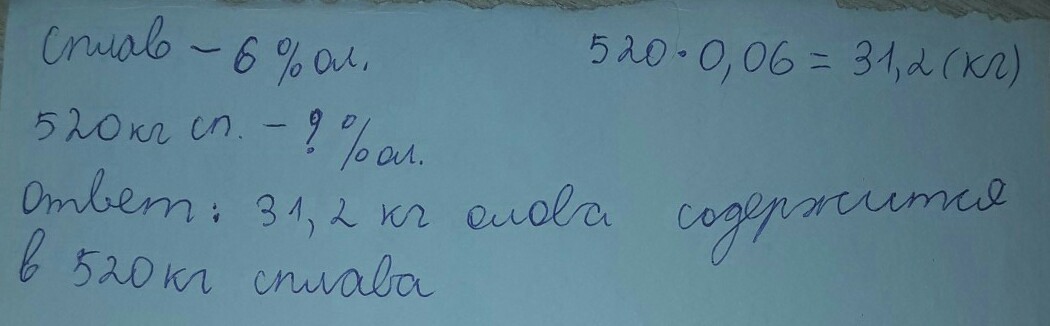 Сплав – 6 % ол. 520·0,06 = 31,2 (кг)
520 кг сп. – ? % ол.
Ответ: 31,2 кг олова содержится
в 520 кг сплава